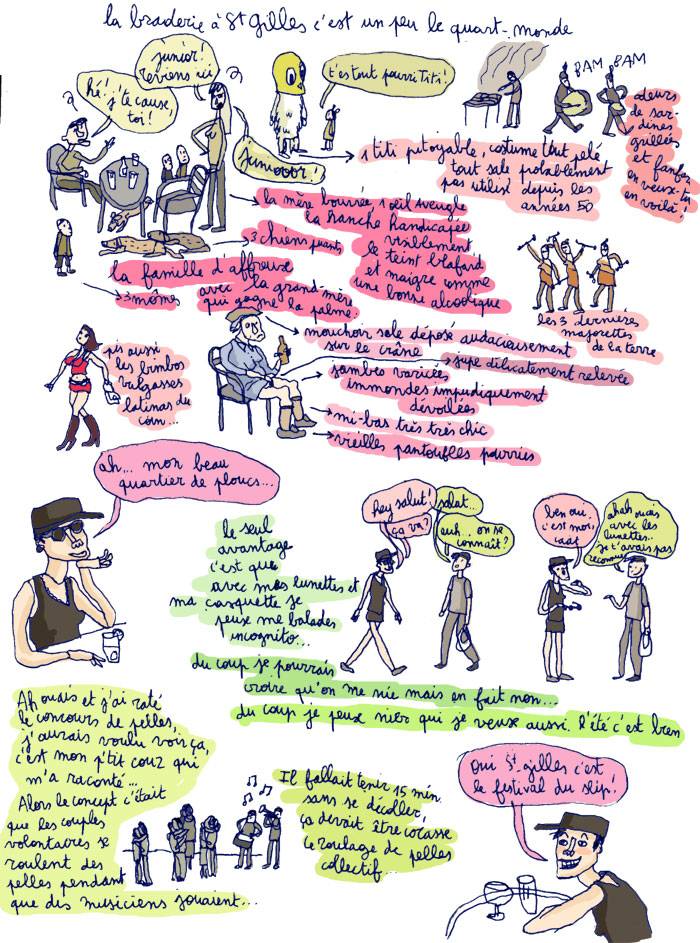 la braderie à St Gilles c'est un peu le quart-monde
hé! j'te cause,
toi!
junior!
reviens ici
junioor!
t'es tout pourri Titi!
BAM BAM
odeurs
de sar-
dines
grillées
et fanfare
en veux-tu
en voilà!
1 titi pitoyable, costume tout pelé
tout sale probablement
pas utilisé depuis les
années 50
la mère bourrée, 1 oeil aveugle
la hanche handicapée
visiblement
le teint blafard
et maigre comme
une bonne alcoolique
3 chiens puants
la famille d'affreux
avec la grand-mère
qui gagne la palme.
3 mômes
les 3 dernières
majorettes
de la terre
mouchoir sale déposé audacieusement
sur le crâne
jupe délicatement relevée
jambes varicées
immondes impudiquement
dévoilées
mi-bas très très chic
vieilles pantoufles pourries
pis aussi
les bimbos
vulgasses
latinas du
coin...
ah... mon beau
quartier de ploucs...
le seul
avantage
c'est que
avec mes lunettes et
ma casquette je
peux me balader
incognito...
hey salut!
ça va?
salut...
euh... on se
connaît?
ben oui,
c'est moi,
caaé
ahah ouais
avec les
lunettes..
je t'avais pas
reconnue
du coup je pourrais
croire qu'on me nie mais en fait non...
du coup je peux nier qui je veux aussi. L'été c'est bien
Ah ouais et j'ai raté
le concours de pelles,
j'aurais voulu voir ça,
c'est mon p'tit couz qui
m'a raconté...
Alors le concept c'était
que les couples
volontaires se
roulent des
pelles pendant
que des musiciens jouaient...
Il fallait tenir 15 min.
sans se décoller,
ça devait être cocasse
ce roulage de pelles
collectif...
Oui St. gilles c'est
le festival du slip!